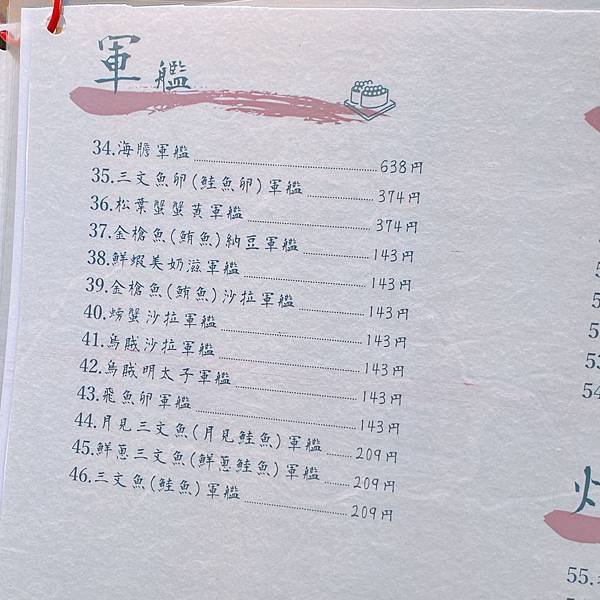 軍艦
34.海膽軍艦 638円
35.三文魚卵(鮭魚卵)軍艦 374円
36.松葉蟹蟹黃軍艦 374円
37.金槍魚(鮪魚)納豆軍艦 143円
38.鮮蝦美奶滋軍艦 143円
39.金槍魚(鮪魚)沙拉軍艦 143円
40.螃蟹沙拉軍艦 143円
41.烏賊沙拉軍艦 143円
42.烏賊明太子軍艦 143円
43.飛魚卵軍艦 143円
44.月見三文魚(月見鮭魚)軍艦 209円
45.鮮蔥三文魚(鮮蔥鮭魚)軍艦 209円
46.三文魚(鮭魚)軍艦 209円
53
54
55.